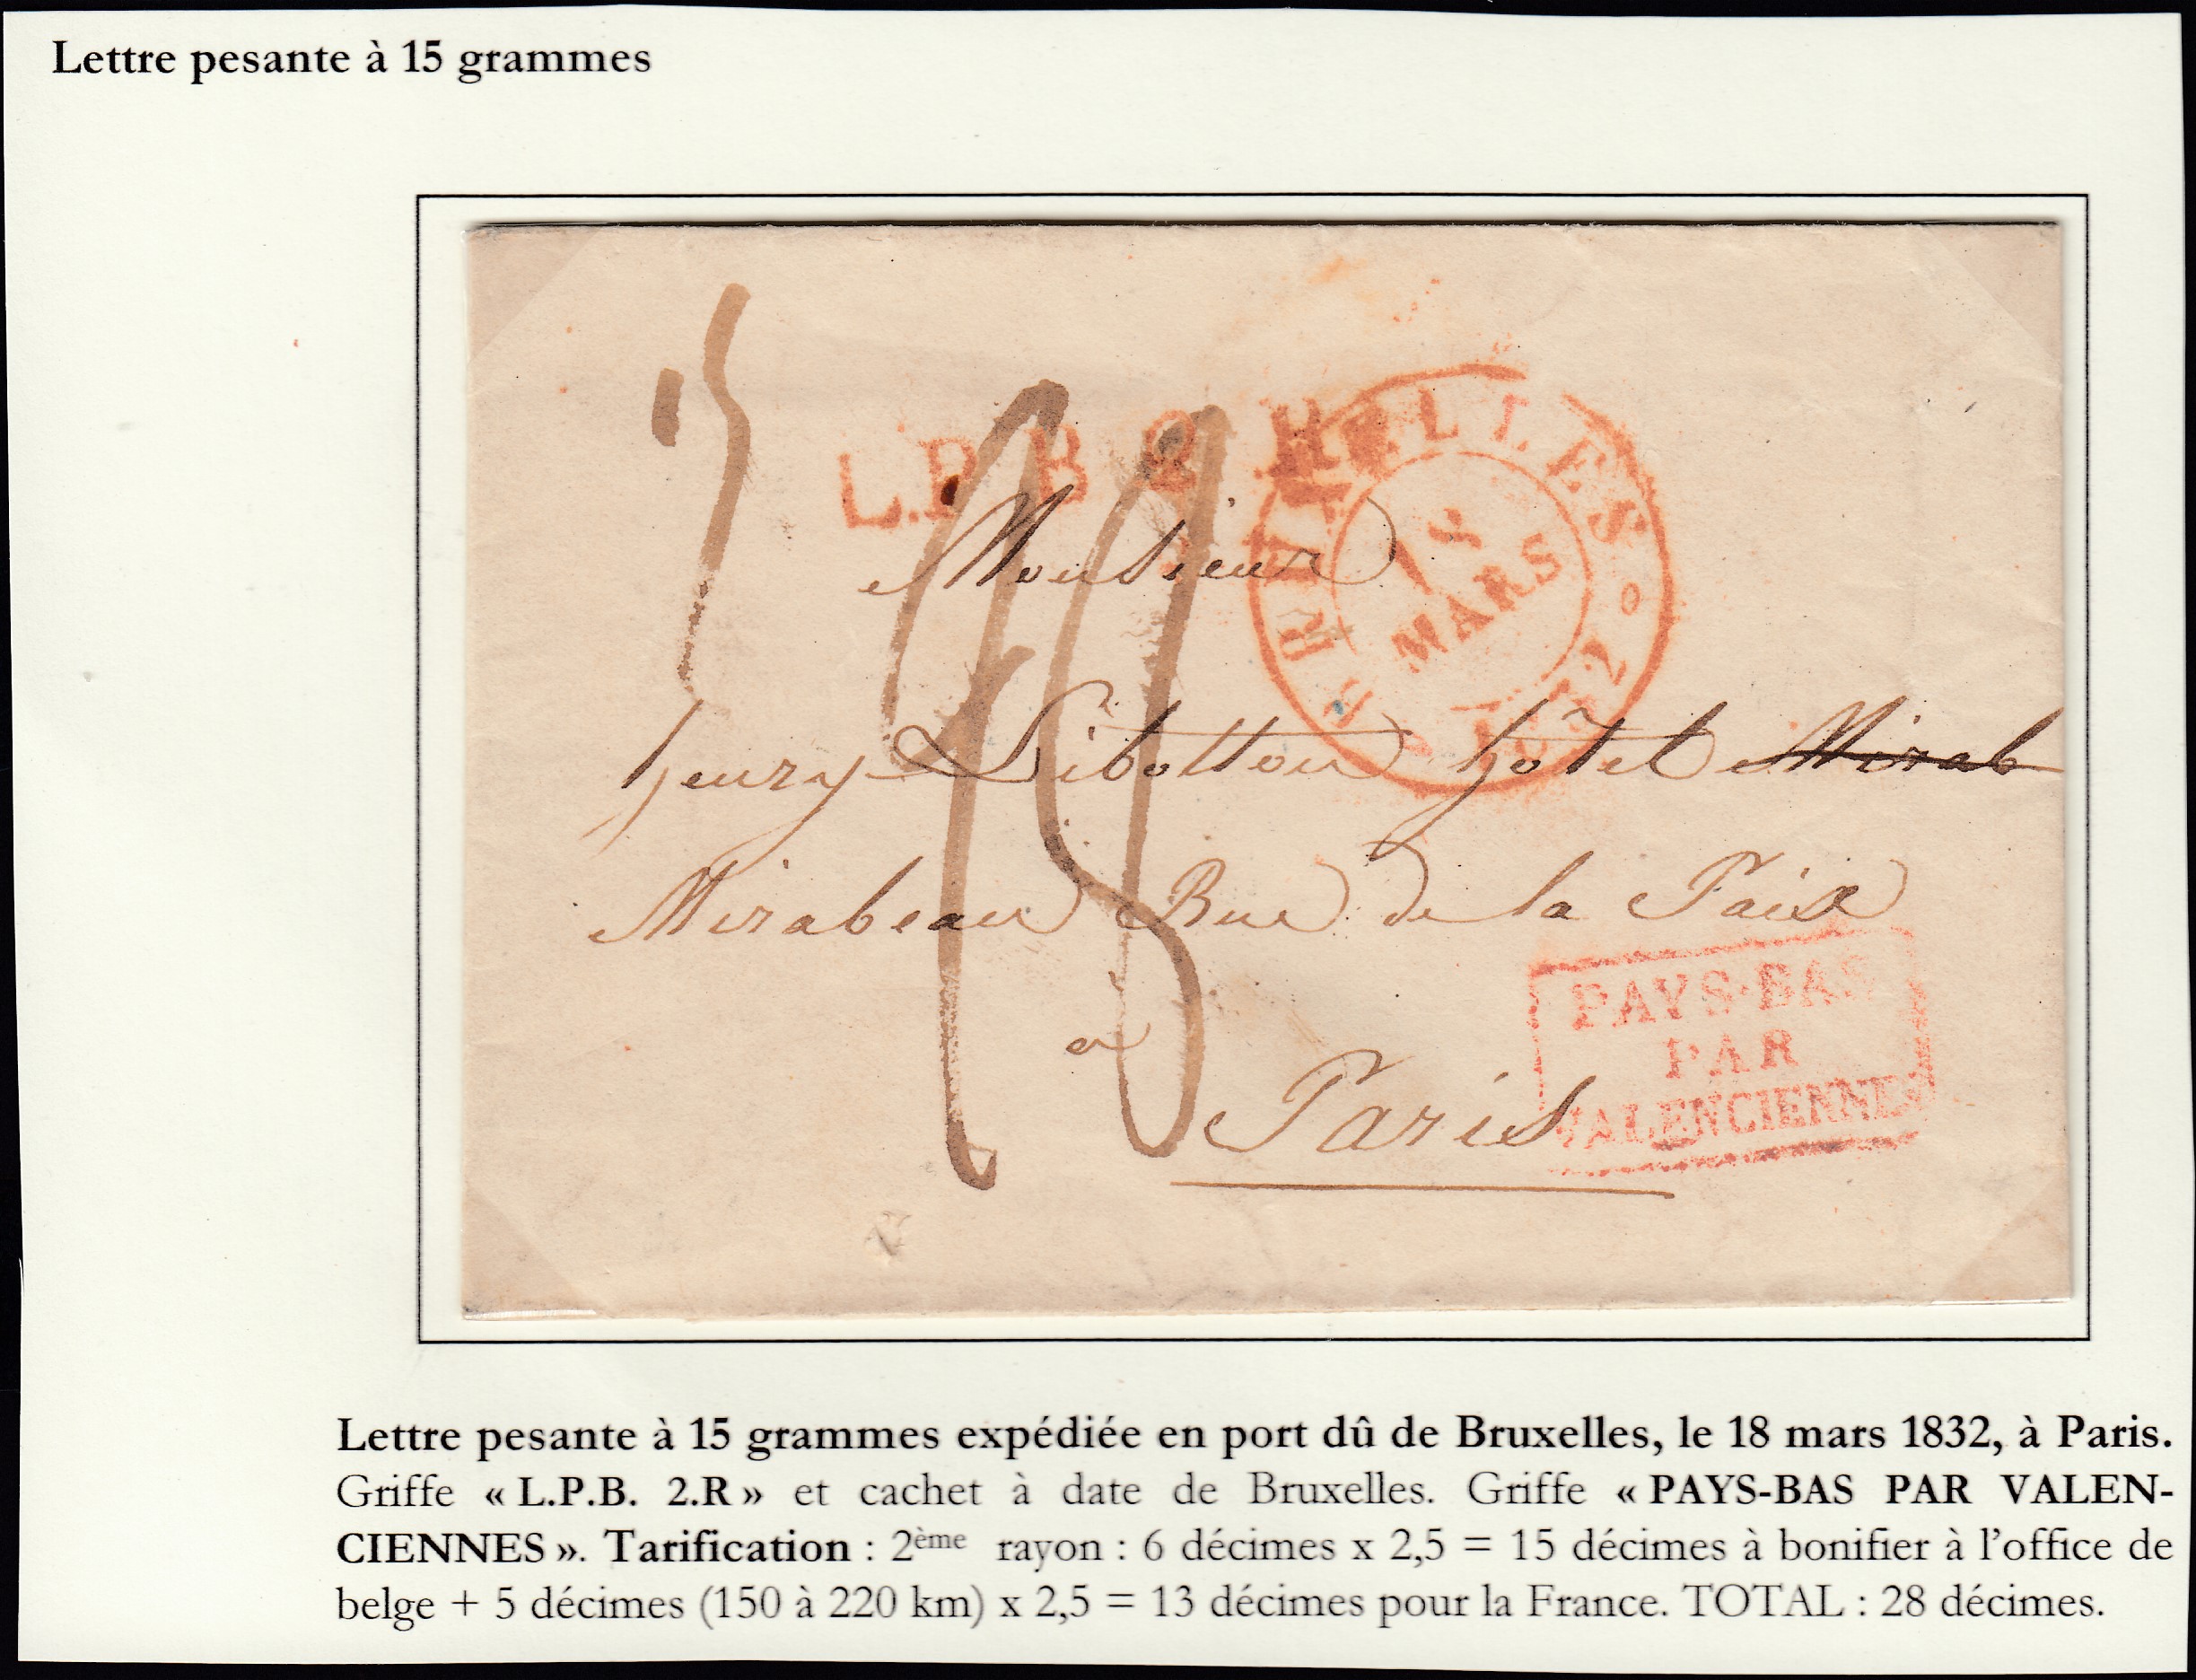 Lettre pesante à 15 grammes
L.P.B. 2.R
BRUXELLES
18
MARS
1832
Monsieur
henry Libotton hôtel Mirab
Mirabeau Rue de la Paix
a
Paris
PAYS-BAS
PAR
VALENCIENNES
Lettre pesante à 15 grammes expédiée en port dû de Bruxelles, le 18 mars 1832, à Paris.
Griffe « L.P.B. 2.R » et cachet à date de Bruxelles. Griffe « PAYS-BAS PAR VALEN-
CIENNES ». Tarification : 2ème rayon : 6 décimes x 2,5 = 15 décimes à bonifier à l'office de
belge + 5 décimes (150 à 220 km) x 2,5 = 13 décimes pour la France. TOTAL : 28 décimes.